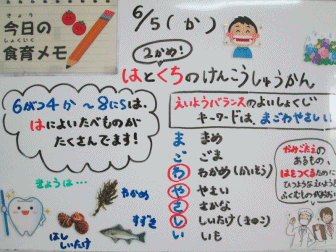 きょう
今日の
しょくいく
食育メモ
6/5(か)
2かめ!
はとくちのけんこうしゅうかん
6が04か～8にちは、
はによいたべものが
たくさんでます!
えいようバランスのよいしょくじ
キーワードは、まごわやさしい
ま まめ
ご ごま
わ わかめ(かいそう)
や やさい
さ さかな
し しいたけ(きのこ)
い いも
かみごたえの
あるもの
はをつくるために
ひつようなえいようを
ふくむもの
きょうは…
わかめ
すずき
ほししいたけ